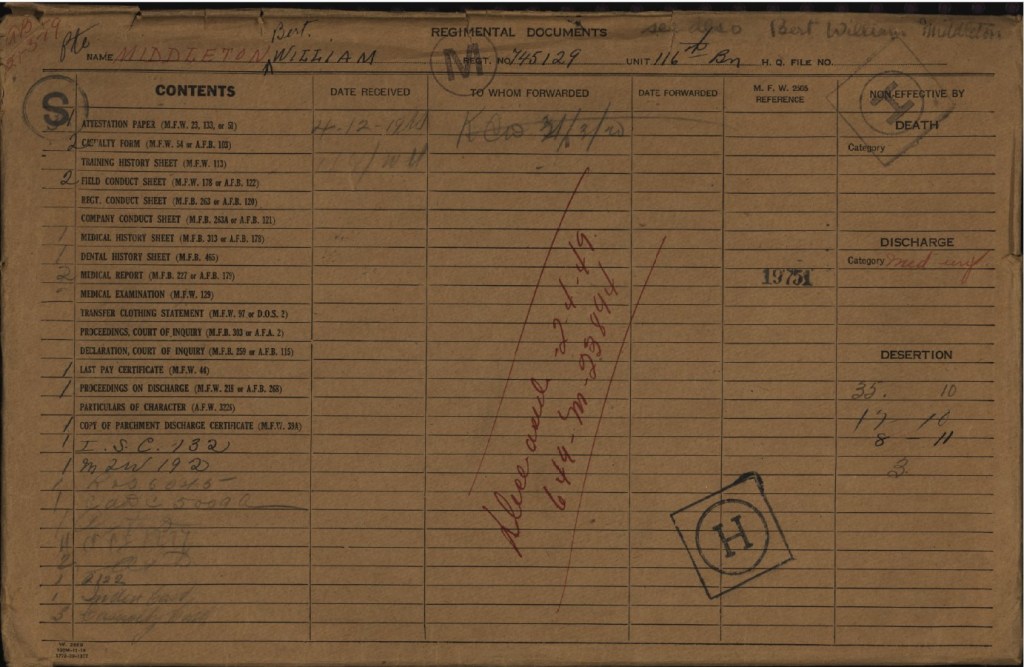 REGIMENTAL DOCUMENTS
see also Bert William Middleton
Pte
NAME MIDDLETON, Bert. WILLIAM REGT. NO. 745129 UNIT 116th Bn H. Q. FILE NO.
M
S
H
CONTENTS DATE RECEIVED TO WHOM FORWARDED DATE FORWARDED M. F. W. 2505 REFERENCE NON-EFFECTIVE BY
DEATH
Category
1 ATTESTATION PAPER (M.F.W. 23, 133, or 51) 4-12-19
2 CASUALTY FORM (M.F.W. 54 or A.F.B. 103)
TRAINING HISTORY SHEET (M.F.W. 113)
2 FIELD CONDUCT SHEET (M.F.W. 178 or A.F.B. 122)
REGT. CONDUCT SHEET (M.F.B. 263 or A.F.B. 120)
COMPANY CONDUCT SHEET (M.F.B. 263A or A.F.B. 121)
1 MEDICAL HISTORY SHEET (M.F.B. 313 or A.F.B. 178)
DISCHARGE
1 DENTAL HISTORY SHEET (M.F.B. 465)
Category med
2 MEDICAL REPORT (M.F.B. 227 or A.F.B. 179)
19751
MEDICAL EXAMINATION (M.F.W. 129)
TRANSFER CLOTHING STATEMENT (M.F.W. 97 or D.O.S. 2)
PROCEEDINGS, COURT OF INQUIRY (M.F.B. 303 or A.F.A. 2)
DECLARATION, COURT OF INQUIRY (M.F.B. 259 or A.F.B. 115)
DESERTION
1 LAST PAY CERTIFICATE (M.F.W. 44)
1 PROCEEDINGS ON DISCHARGE (M.F.W. 218 or A.F.B. 268)
35. 10
PARTICULARS OF CHARACTER (A.F.W. 3226)
17 10
1 COPY OF PARCHMENT DISCHARGE CERTIFICATE (M.F.W. 39A)
8 - 11
1 I.S.C. 132
1 M2W 192
3
Deceased 22-4-49
649-M-23844
H
1 2122
1 Index Card
3 Casualty